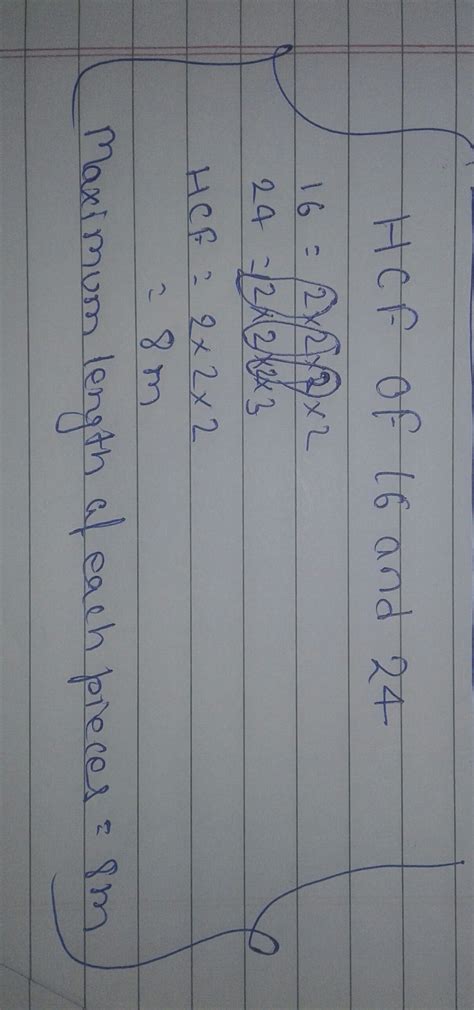 HCF OF 16 and 24
16 = 2×2×2×2
24 = 2×2×2×3
HCF = 2×2×2
= 8m
Maximum length of each pieces = 8m